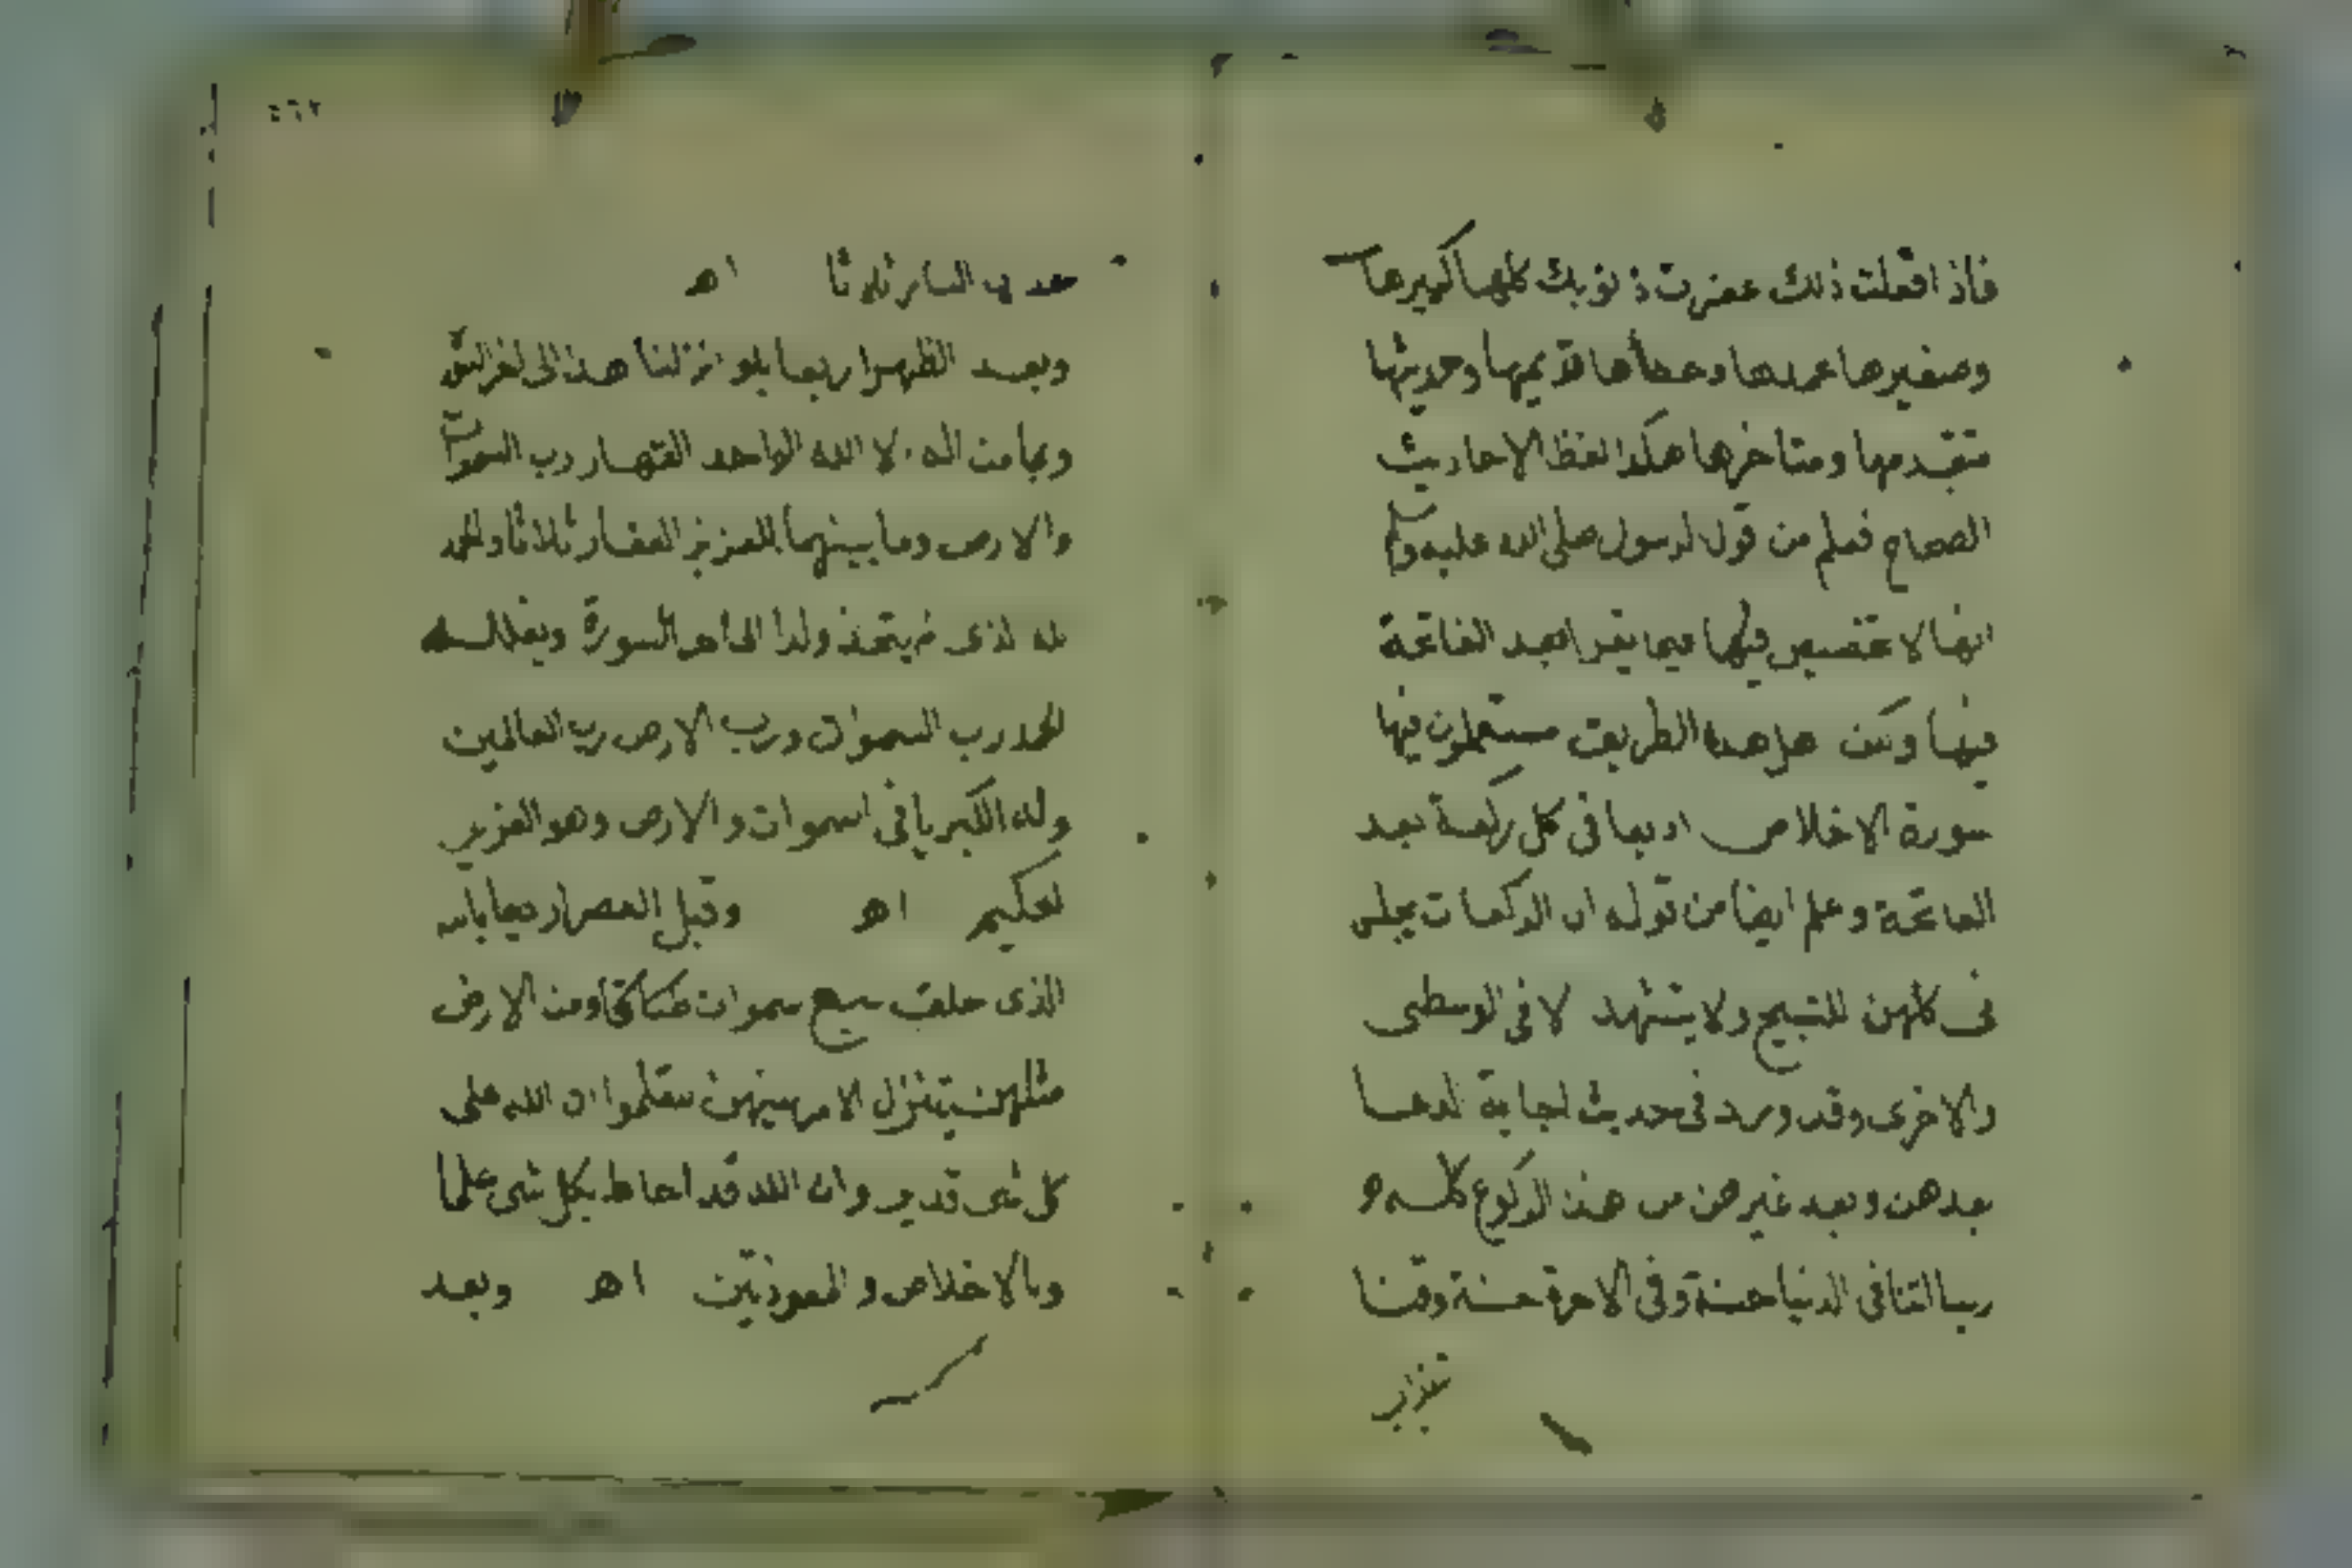 فاذا فعلت ذلك غفرت ذنوبك كلها كبيرها
وصغيرها عمدها وخطأها قديمها وحديثها
متقدمها ومتاخرها هكذا لفظ الاحاديث
الصحاح فعلم من قول الرسول صلى الله عليه وسلم
انها لا تخصيص فيها فيما يقرا بعد الفاتحة
فيها ونحن على هذا الطريقة مستعملون فيها
سورة الاخلاص اربعا فى كل ركعة بعد
الفاتحة وعلم ايضا من قوله ان الركعات يجلس
فى كلهن للتسبيح ولا يتشهد الا فى الوسطى
والاخرى وقد ورد فى حديث الدعا
بعدهن وبعد غيرهن من هذا الركوع كله و
ربنا اتنا فى الدنيا حسنة وفى الاخرة حسنة وقنا
٤٦٢
عذاب النار ثلاثا اهـ
وبعد الظهر اربعا بلو انزلنا هذا الى اخر
وبما من اله الا الله الواحد القهار رب السموات
والارض وما بينهما العزيز الغفار ثلاثا والحمد
لله الذى لم يتخذ ولدا الى اخر السورة
الحمد رب السموات ورب الارض رب العالمين
وله الكبريا فى السموات والارض وهو العزيز
الحكيم اهـ وقبل العصر اربعا بالله
الذى خلق سبع سموات طباقا ومن الارض
مثلهن يتنزل الامر بينهن لتعلموا ان الله على
كل شى قدير وان الله قد احاط بكل شى علما
وبالاخلاص والمعوذتين اهـ وبعد